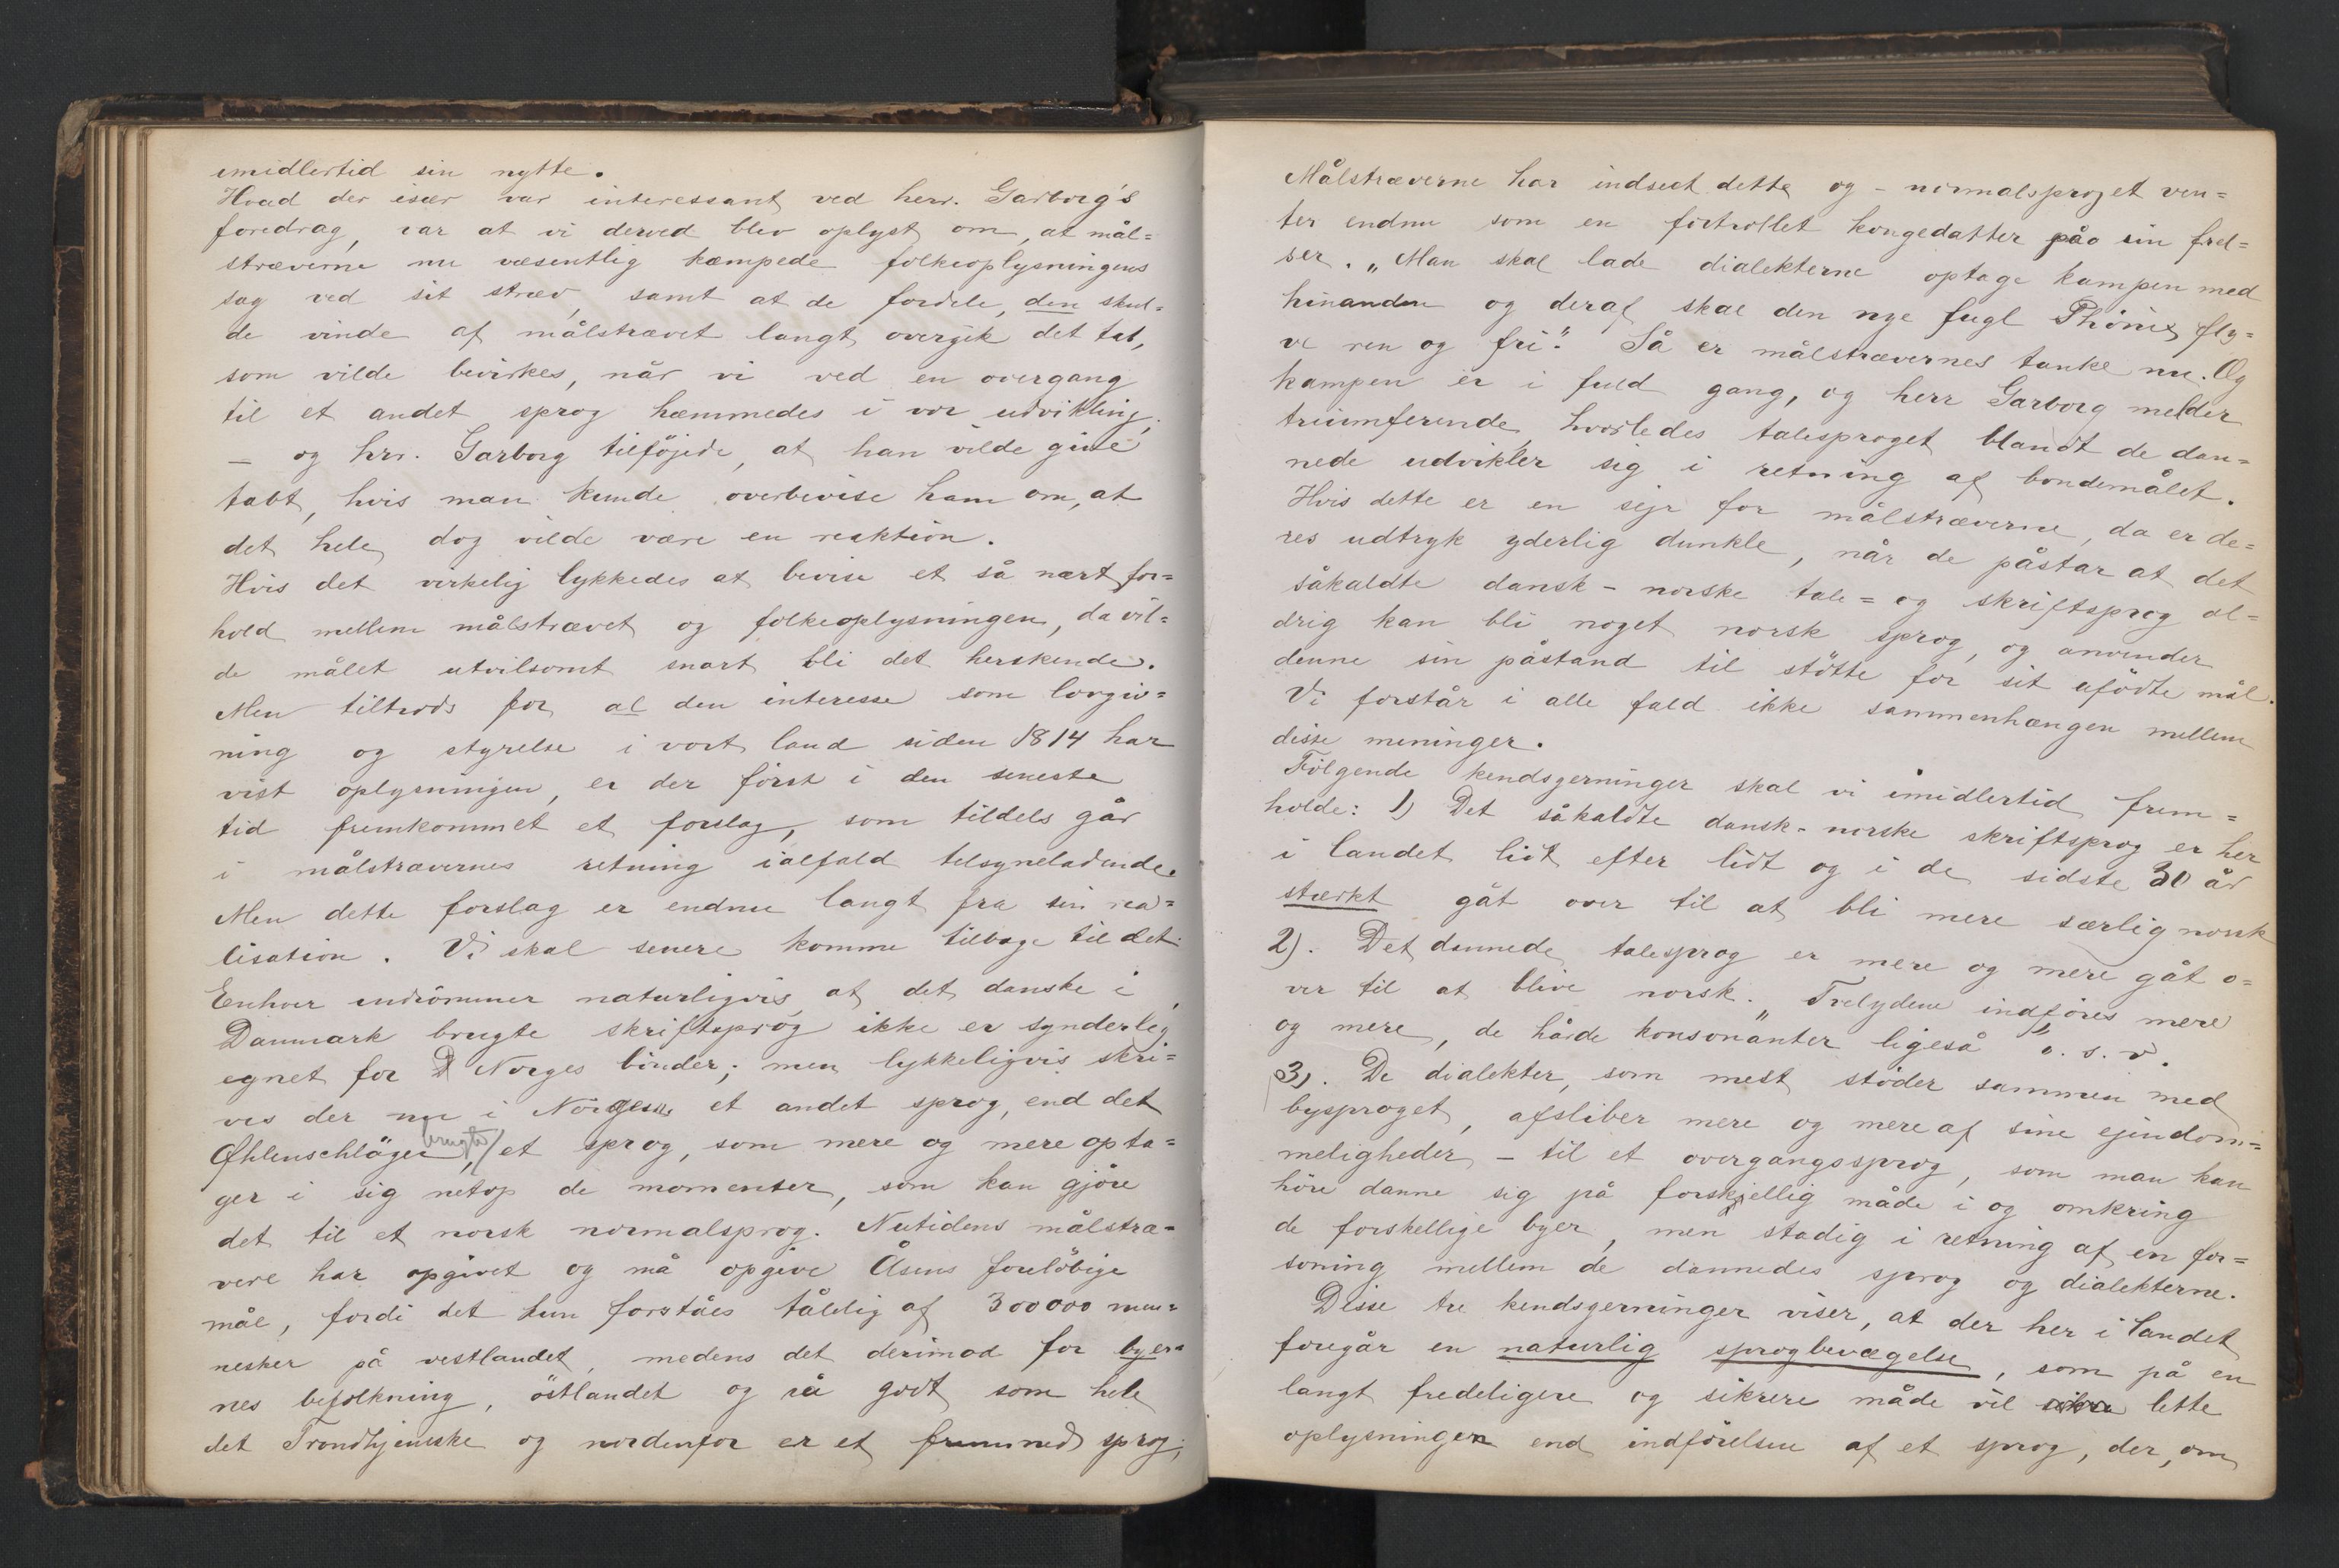 imidlertid sin nytte.
Hvad der især var interessant ved herr. Garborg's
foredrag, var at vi derved blev oplyst om, at mål=
stræverne nu væsentlig kæmpede folkeoplysningens
sag ved sit stræv, samt at de fordele, den skul=
de vinde af målstrævet langt overgik det tab,
som vilde bevirkes, når vi ved en overgang
til et andet sprog hæmmedes i vor udvikling;
— og hrr. Garborg tilföjede, at han vilde give
tabt, hvis man kunde overbevise ham om, at
det hele dog vilde være en reaktion.
Hvis det virkelig lykkedes at bevise et så nært for=
hold mellem målstrævet og folkeoplysningen, da vil=
de målet utvilsomt snart bli det herskende.
Men tiltrods for al den interesse som lovgiv=
ning og styrelse i vort land siden 1814 har
vist oplysningen, er der först i den seneste
tid fremkommet et forslag, som tildels går
i målstrævernes retning ialfald tilsyneladende.
Men dette forslag er endnu langt fra sin rea=
lisation. Vi skal senere komme tilbage til det.
Enhver indrömmer naturligvis, at det danske i
Danmark brugte skriftsprog ikke er synderlig
egnet for D Norges bönder; men lykkeligvis skri=
ves der nu i Norge et andet sprog, end det
Øhlenschläger brugte, et sprog, som mere og mere opta=
ger i sig netop de momenter, som kan gjöre
det til et norsk normalsprog. Nutidens målstræ=
vere har opgivet og må opgive Åsens forelöbige
mål, fordi det kun forståes tålelig af 300000 men=
nesker på vestlandet, medens det derimod for byer=
nes befolkning, östlandet og så godt som hele
det Trondhjemske og nordenfor er et fremmed sprog;
Målstræverne har indseet dette og - normalsproget ven=
ter endnu som en fortrollet kongedatter på sin frel=
ser. „Man skal lade dialekterne optage kampen med
hinanden og deraf skal den nye fugl Phönix fly=
ve ren og fri." Så er målstrævernes tanke nu. Og
kampen er i fuld gang, og herr Garborg melder
triumferende, hvorledes talesproget blandt de dan=
nede udvikler sig i retning af bondemålet.
Hvis dette er en sejr for målstræverne, da er de=
res udtryk yderlig dunkle, når de påstar at det
såkaldte dansk-norske tale= og skriftsprog al=
drig kan bli noget norsk sprog, og anvender
denne sin påstand til stötte for sit ufödte mål.
Vi forstår i alle fald ikke sammenhængen mellem
disse meninger.
Fölgende kendsgerninger skal vi imidlertid frem=
holde: 1) Det såkaldte dansk-norske skriftsprog er her
i landet lidt efter lidt og i de sidste 30 år
stærkt gåt over til at bli mere særlig norsk
2). Det dannede talesprog er mere og mere gåt o=
ver til at blive norsk. „Tvelydene indföres mere
og mere, de hårde konsonanter ligeså" o. s. v.
3). De dialekter, som mest stöder sammen med
bysproget, afsliber mere og mere af sine ejendom=
meligheder - til et overgangssprog, som man kan
höre danne sig på forskjellig måde i og omkring
de forskellige byer, men stadig i retning af en for=
soning mellem de dannedes sprog og dialekterne.
Disse tre kendsgerninger viser, at der her i landet
foregår en naturlig sprogbevægelse, som på en
langt fredeligere og sikrere måde vil lette
oplysningen end indförelsen af et sprog, der, om